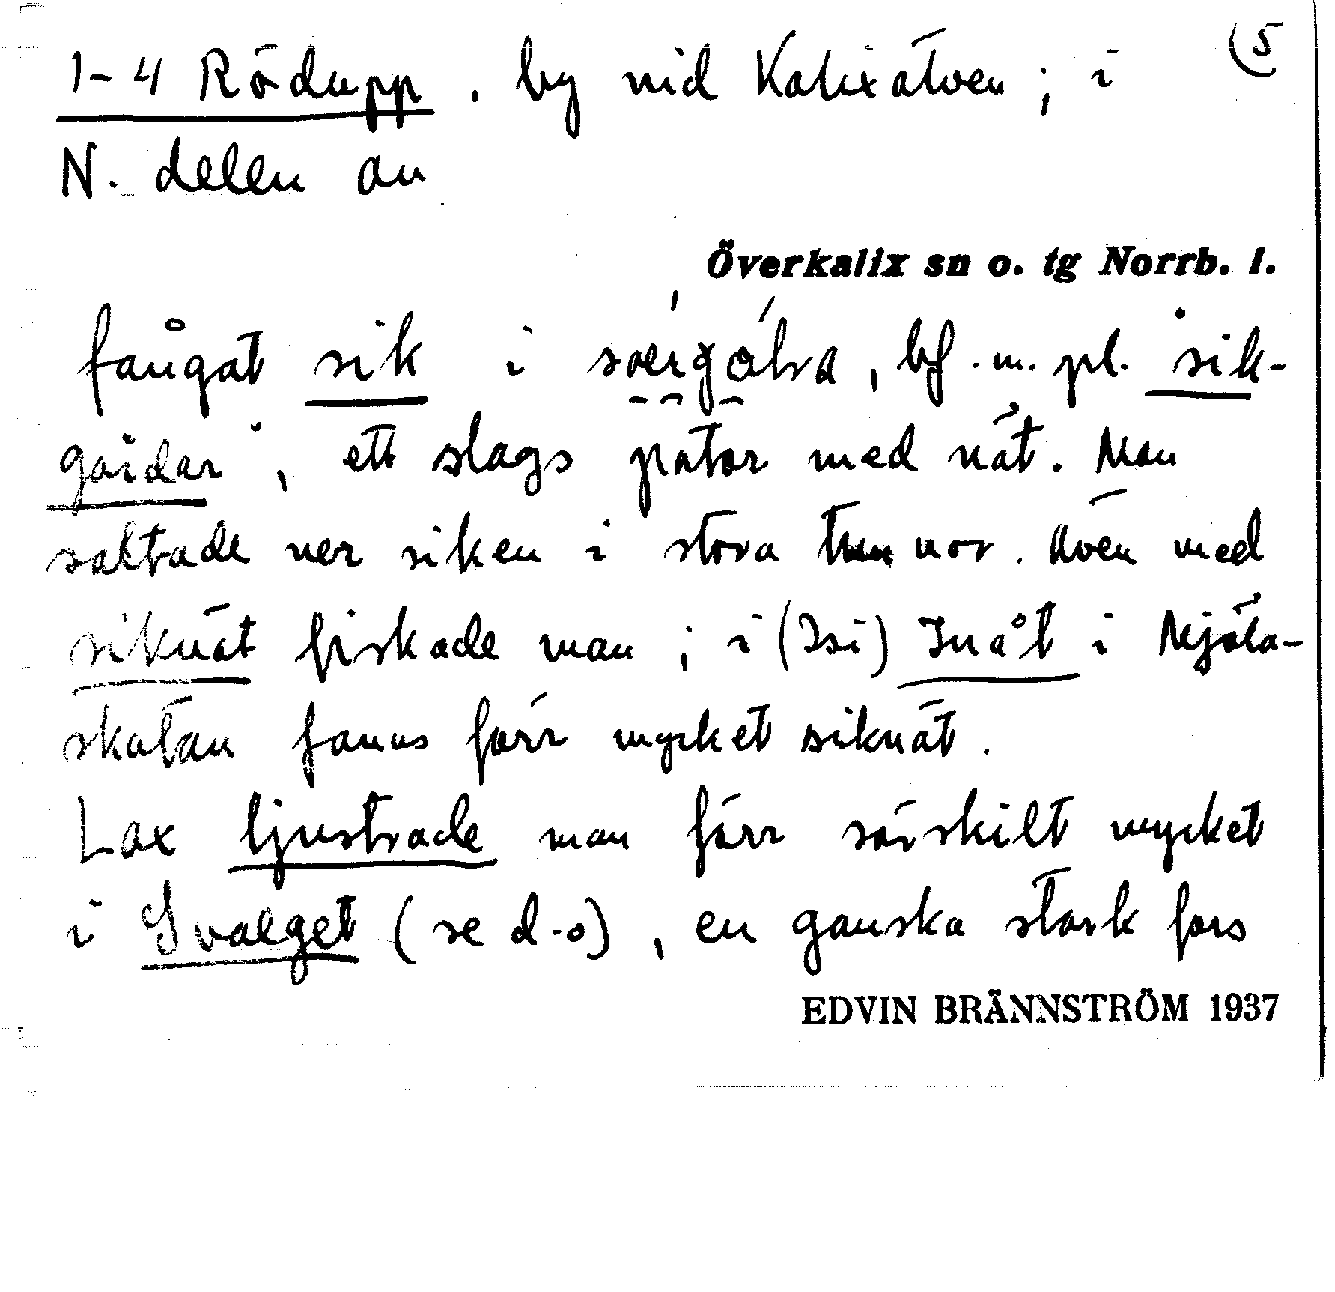 1-4 Rödupp, by vid Kalixälven; i (5
N. delen av
Överkalix sn o. tg Norrb. l.
fångat sik i , bf. m. pl. 'sik-
gårdar', ett slags pator med nät. Man
saltade ner siken i stora tunnor. Även med
siknät fiskade man; i (Isi) Inåt i Mjöla-
skatan fanns förr mycket siknät.
Lax ljustrade man förr särskilt mycket
i Svalget (se d-o), en ganska stark fors
EDVIN BRÄNNSTRÖM 1937